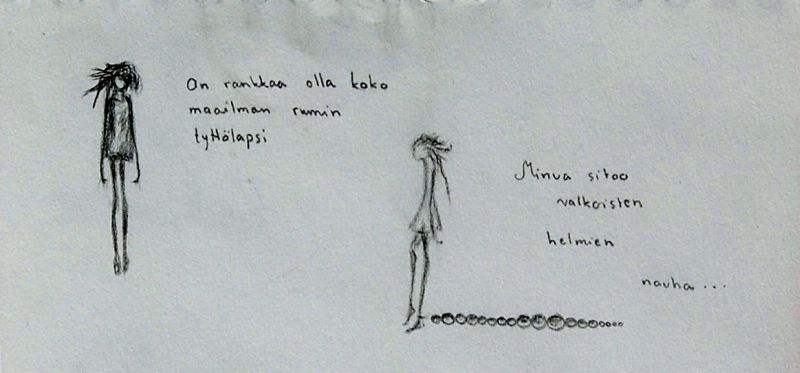 On rankkaa olla koko
maailman rumin
tyttölapsi
Minua sitoo
valkoisten
helmien
nauha...